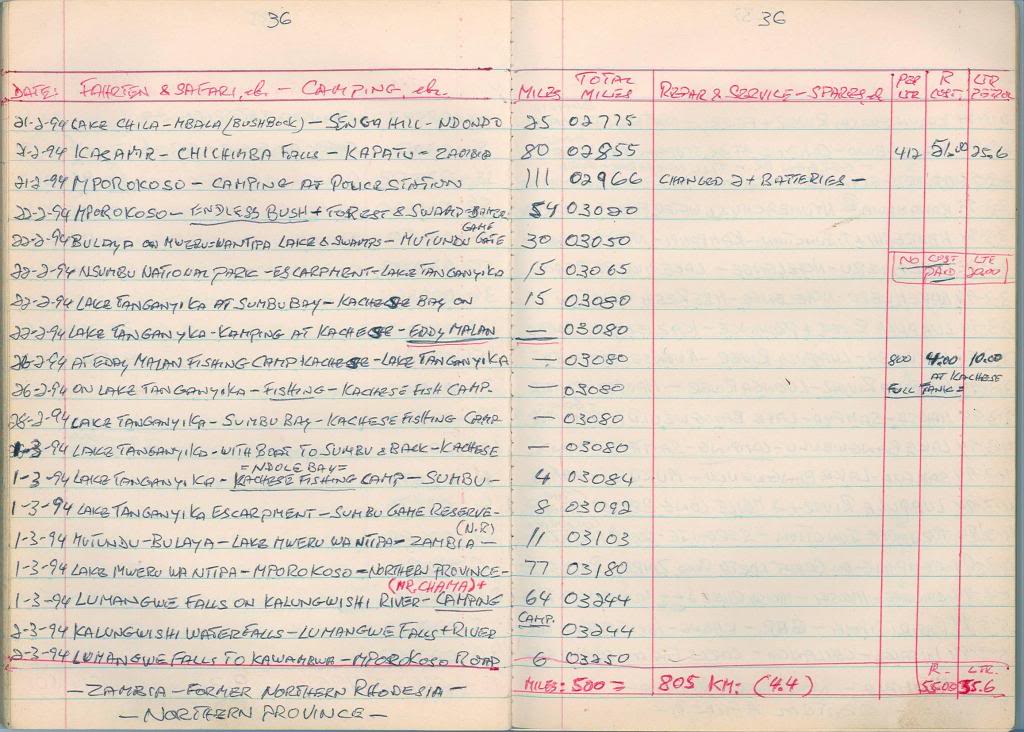 36 36
DATE: FAHRTEN & SAFARI, etc. - CAMPING, etc. MILES TOTAL MILES REPAR & SERVICE - SPARES, etc PER LTR R COST. LTR PETROL
21-2-94 LAKE CHILA - MBALA (BUSHBUCK) - SENGA HILL - NDONDO 25 02775
21-2-94 KASAMA - CHICHIMBA FALLS - KAPATU - ZAMBIA 80 02855 412 51.00 25.6
21-2-94 MPOROKOSO - CAMPING AT POLICE STATION 111 02966 CHANGED 2+ BATTERIES -
22-2-94 MPOROKOSO - ENDLESS BUSH + FOREST & SWAMP - 54 03020
22-2-94 BULAYA ON MWERU-WANTIPA LAKE & SWAMPS - MUTUNDU GAME GATE 30 03050
22-2-94 NSUMBU NATIONAL PARK - ESCARPMENT - LAKE TANGANYIKA 15 03065 NO COST PAID LTR 20.00
22-2-94 LAKE TANGANYIKA AT SUMBU BAY - KACHESE BAY ON 15 03080
22-2-94 LAKE TANGANYIKA - KAMPING AT KACHESE - EDDY MALAN — 03080
26-2-94 AT EDDY MALAN FISHING CAMP KACHESE - LAKE TANGANYIKA — 03080 800 4.00 10.00
26-2-94 ON LAKE TANGANYIKA - FISHING - KACHESE FISH CAMP. — 03080 AT KACHESE FULL TANK =
28-2-94 LAKE TANGANYIKA - SUMBU BAY - KACHESE FISHING CAMP — 03080
1-3-94 LAKE TANGANYIKA - WITH BOAT TO SUMBU & BACK - KACHESE — 03080
= NDOLE BAY =
1-3-94 LAKE TANGANYIKA - KACHESE FISHING CAMP - SUMBU - 4 03084
1-3-94 LAKE TANGANYIKA ESCARPMENT - SUMBU GAME RESERVE - 8 03092
(N.P.)
1-3-94 MUTUNDU - BULAYA - LAKE MWERU WANTIPA - ZAMBIA - 11 03103
1-3-94 LAKE MWERU WANTIPA - MPOROKOSO - NORTHERN PROVINCE - 77 03180
(MR. CHAMA) +
1-3-94 LUMANGWE FALLS ON KALUNGWISHI RIVER - CAMPING 64 03244
2-3-94 KALUNGWISHI WATERFALLS - LUMANGWE FALLS + RIVER CAMP. 03244
2-3-94 LUMANGWE FALLS TO KAWAMBWA - MPOROKOSO ROAD 6 03250
- ZAMBIA - FORMER NORTHERN RHODESIA - MILES: 500 = 805 KM: (4.4) R- 55.00 LTR. 35.6
- NORTHERN PROVINCE -